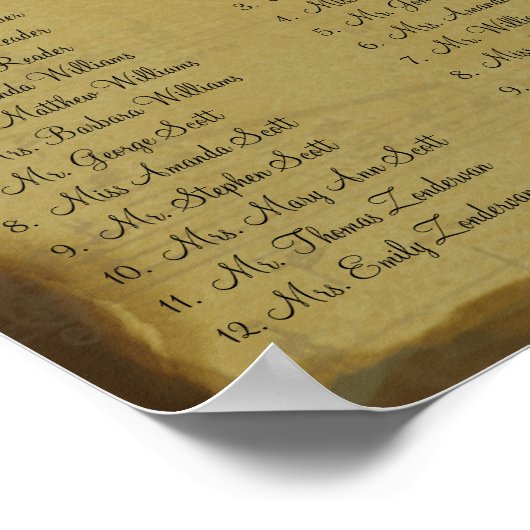 Reader
Reader
Williams
Matthew Williams
Mrs. Barbara Williams
Mr. George Scott
8. Miss Amanda Scott
9. Mr. Stephen Scott
10. Mrs. Mary Ann Scott
11. Mr. Thomas Zondervan
12. Mrs. Emily Zondervan
3.
4. Miss
5. Mr.
6. Mrs. Amanda
7. Mr.
8. Mrs.
9.